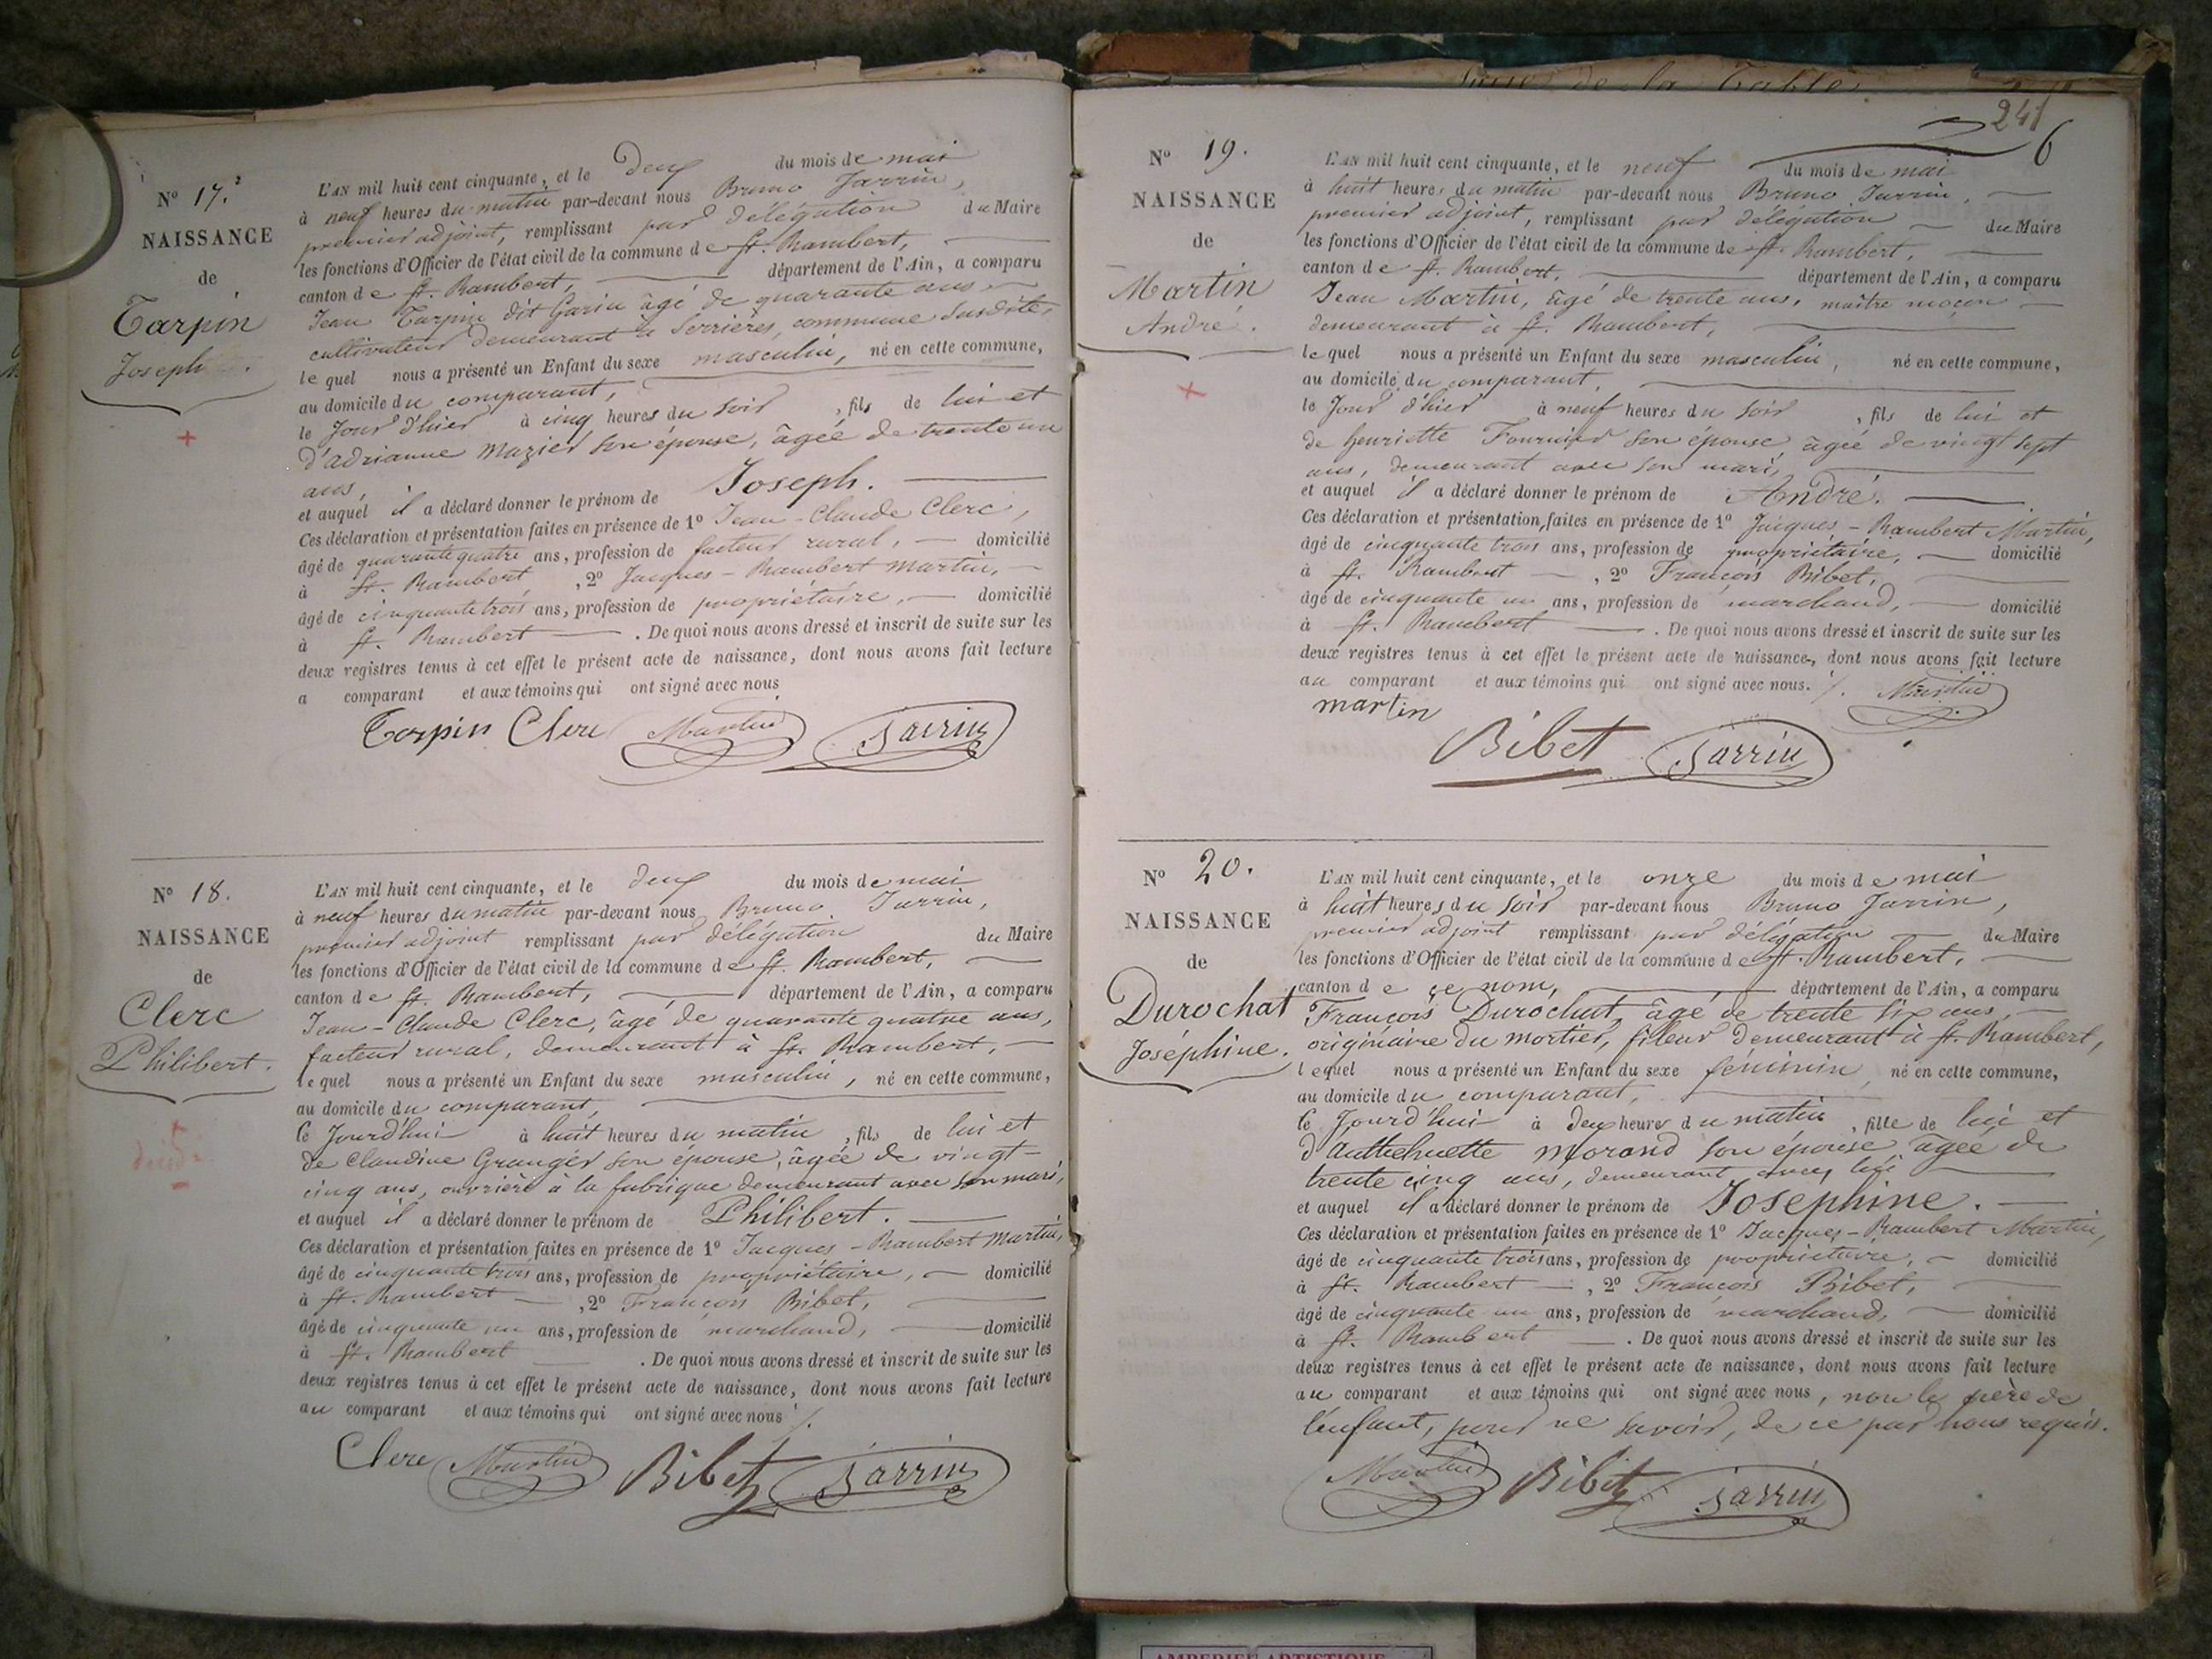 N° 17.
NAISSANCE
de
Tarpin
Joseph.
L'AN mil huit cent cinquante, et le Deux du mois de mai
à neuf heures du matin par-devant nous Bruno Jarrin,
premier adjoint, remplissant par délégation du Maire
les fonctions d'Officier de l'état civil de la commune de St. Rambert,
canton de St. Rambert, département de l'Ain, a comparu
Jean Tarpin dit Garin âgé de quarante ans
cultivateur demeurant à Serrières, commune susdite,
lequel nous a présenté un Enfant du sexe masculin, né en cette commune,
au domicile du comparant,
le Jour d'hier à cinq heures du soir, fils de lui et
d'adrianne Mazier son épouse, âgée de trente un
ans,
et auquel il a déclaré donner le prénom de Joseph.
Ces déclaration et présentation faites en présence de 1° Jean-Claude Clerc,
âgé de quarante quatre ans, profession de facteur rural, domicilié
à St. Rambert, 2° Jacques-Rambert Martin,
âgé de cinquante trois ans, profession de propriétaire, domicilié
à St. Rambert. De quoi nous avons dressé et inscrit de suite sur les
deux registres tenus à cet effet le présent acte de naissance, dont nous avons fait lecture
a comparant et aux témoins qui ont signé avec nous
Tarpin Clerc Martin Jarrin
N° 18.
NAISSANCE
de
Clerc
Philibert.
L'AN mil huit cent cinquante, et le deux du mois de mai
à neuf heures du matin par-devant nous Bruno Jarrin,
premier adjoint remplissant par délégation du Maire
les fonctions d'Officier de l'état civil de la commune de St. Rambert,
canton de St. Rambert, département de l'Ain, a comparu
Jean-Claude Clerc, âgé de quarante quatre ans,
facteur rural, demeurant à St. Rambert,
lequel nous a présenté un Enfant du sexe masculin, né en cette commune,
au domicile du comparant,
ce Jourd'hui à huit heures du matin, fils de lui et
de Claudine Granger son épouse, âgée de vingt-
cinq ans, ouvrière à la fabrique demeurant avec son mari,
et auquel il a déclaré donner le prénom de Philibert.
Ces déclaration et présentation faites en présence de 1° Jacques-Rambert Martin,
âgé de cinquante trois ans, profession de propriétaire, domicilié
à St. Rambert, 2° François Bibet,
âgé de cinquante un ans, profession de marchand, domicilié
à St. Rambert. De quoi nous avons dressé et inscrit de suite sur les
deux registres tenus à cet effet le présent acte de naissance, dont nous avons fait lecture
au comparant et aux témoins qui ont signé avec nous
Clerc Martin Bibet Jarrin
241
6
N° 19.
NAISSANCE
de
Martin
André.
L'AN mil huit cent cinquante, et le neuf du mois de mai
à huit heures du matin par-devant nous Bruno Jarrin,
premier adjoint, remplissant par délégation du Maire
les fonctions d'Officier de l'état civil de la commune de St. Rambert,
canton de St. Rambert, département de l'Ain, a comparu
Jean Martin, âgé de trente ans, maître maçon
demeurant à St. Rambert,
lequel nous a présenté un Enfant du sexe masculin, né en cette commune,
au domicile du comparant,
le Jour d'hier à neuf heures du soir, fils de lui et
de henriette Fournier son épouse, âgée de vingt sept
ans, demeurant avec son mari,
et auquel il a déclaré donner le prénom de André.
Ces déclaration et présentation faites en présence de 1° Jacques-Rambert Martin,
âgé de cinquante trois ans, profession de propriétaire, domicilié
à St. Rambert, 2° François Bibet,
âgé de cinquante un ans, profession de marchand, domicilié
à St. Rambert. De quoi nous avons dressé et inscrit de suite sur les
deux registres tenus à cet effet le présent acte de naissance, dont nous avons fait lecture
au comparant et aux témoins qui ont signé avec nous. Martin
martin
Bibet Jarrin
N° 20.
NAISSANCE
de
Durochat
Joséphine.
L'AN mil huit cent cinquante, et le onze du mois de mai
à huit heures du soir par-devant nous Bruno Jarrin,
premier adjoint remplissant par délégation du Maire
les fonctions d'Officier de l'état civil de la commune de St. Rambert,
canton de ce nom, département de l'Ain, a comparu
François Durochat, âgé de trente six ans,
originaire du mortier, fileur demeurant à St. Rambert,
lequel nous a présenté un Enfant du sexe féminin né en cette commune,
au domicile du comparant,
ce Jourd'hui à deux heures du matin, fille de lui et
Morand son épouse âgée de
trente cinq ans, demeurant avec lui
et auquel il a déclaré donner le prénom de Josephine.
Ces déclaration et présentation faites en présence de 1° Jacques-Rambert Martin,
âgé de cinquante trois ans, profession de propriétaire, domicilié
à St. Rambert, 2° François Bibet,
âgé de cinquante un ans, profession de marchand, domicilié
à St. Rambert. De quoi nous avons dressé et inscrit de suite sur les
deux registres tenus à cet effet le présent acte de naissance, dont nous avons fait lecture
au comparant et aux témoins qui ont signé avec nous, non le père de
l'enfant, pour ne savoir, de ce par nous requis.
Martin Bibet Jarrin